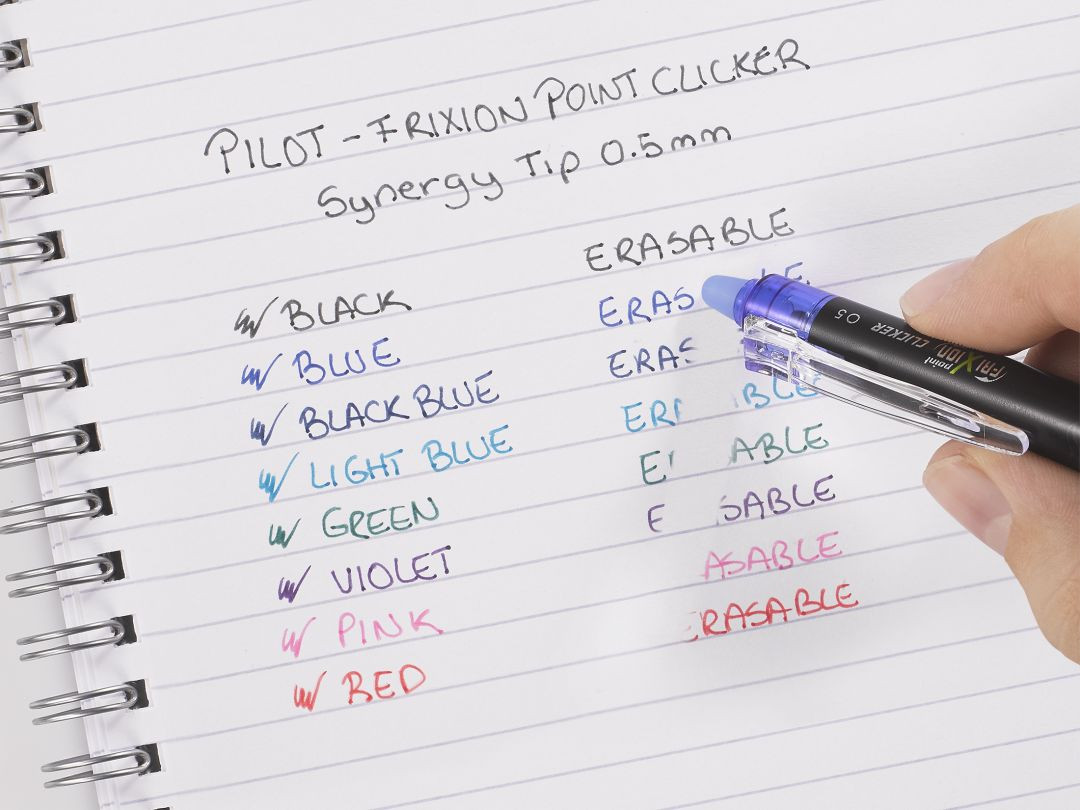 PILOT - FRIXION POINT CLICKER
Synergy Tip 0.5mm
BLACK
BLUE
BLACK BLUE
LIGHT BLUE
GREEN
VIOLET
PINK
RED
ERASABLE
ERAS LE
ERAS
ER BLE
E ABLE
E SABLE
ASABLE
ERASABLE
FRIXion point CLICKER 0.5